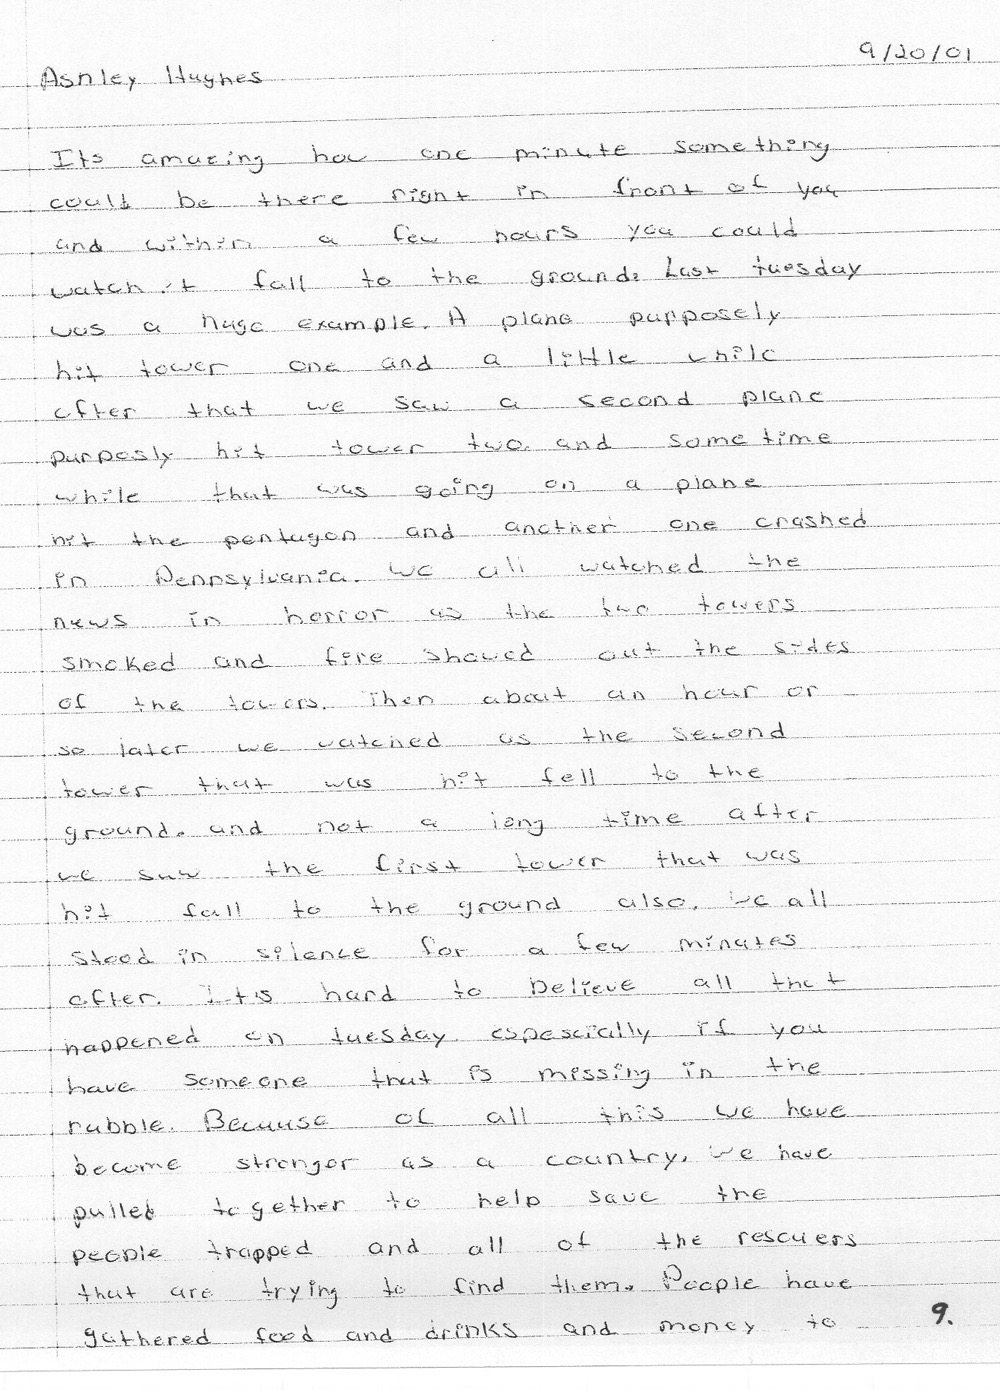 9/20/01
Ashley Hughes
Its amazing how one minute something
could be there right in front of you
and within a few hours you could
watch it fall to the ground. Last tuesday
was a huge example. A plane purposely
hit tower one and a little while
after that we saw a second plane
purposly hit tower two. and sometime
while that was going on a plane
hit the pentagon and another one crashed
in Pennsylvania. We all watched the
news in horror as the two towers
smoked and fire showed out the sides
of the towers. Then about an hour or
so later we watched as the second
tower that was hit fell to the
ground. and not a long time after
we saw the first tower that was
hit fall to the ground also. We all
stood in silence for a few minutes
after. It's hard to believe all that
happened on tuesday. espescially if you
have someone that is missing in the
rubble. Because of all this we have
become stronger as a country. We have
pulled together to help save the
people trapped and all of the rescuers
that are trying to find them. People have
gathered food and drinks and money to
9.